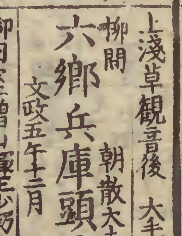 上淺草観音後 大手
柳間 朝散大夫
六郷兵庫頭
文政五午十二月